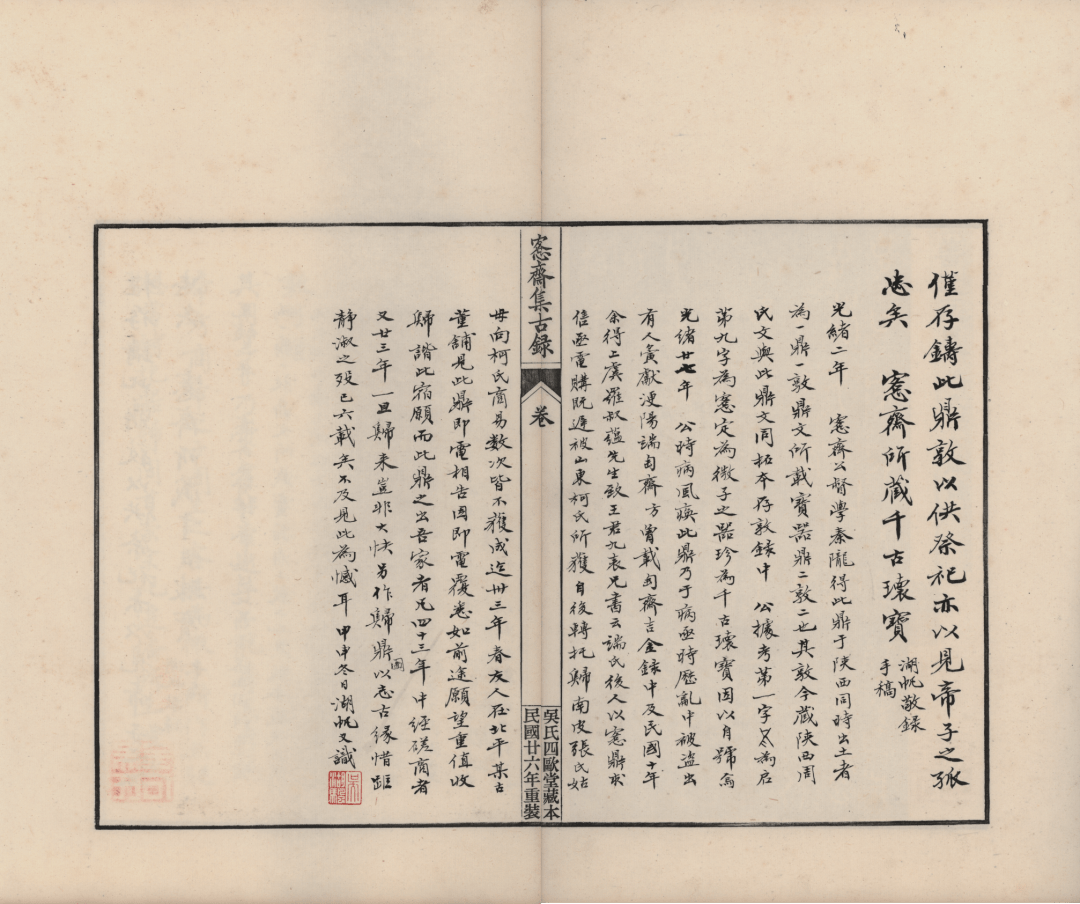 僅存鑄此鼎敦以供祭祀亦以見帝子之孫
志矣　愙齋所藏千古瓌寶
湖帆敬錄
手稿
光緒二年　愙齋公督學秦隴得此鼎于陝西同時出土者
為一鼎一敦鼎文所載寶器鼎二敦二也其敦今藏陝西周
氏文與此鼎文同拓本存敦錄中　公據考第一字為启
第九字為愙定為微子之器珍為千古瓌寶因以自號焉
光緒廿七年　公時病風痪此鼎乃于病亟時歷亂中被盜出
有人賫獻浭陽端匋齋方曾載匋齋吉金錄中及民國十年
余得上虞羅叔蘊先生致王君九表兄書云端氏後人以愙鼎求
售亟電購既遲被山東柯氏所獲自後轉托歸南皮張氏姑
母向柯氏商易數次皆不獲成迄卅三年春友人在北平某古
董舖見此鼎即電相告因即電覆悉如前途願望重值收
歸諧此宿願而此鼎之出吾家有兄四十三年中經磋商者
又廿三年一旦歸來豈非大快另作歸鼎圖以志古緣惜
靜淑之歿已六載矣不及見此為憾耳　甲申冬日湖帆又識
愙齋集古錄
卷
吳氏四歐堂藏本
民國廿六年重裝